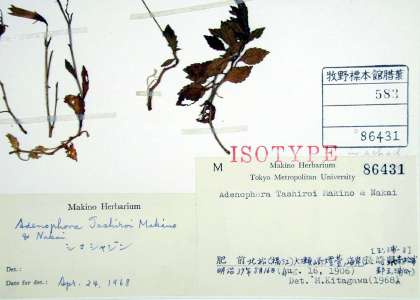 牧野標本館腊葉
583
86431
ISOTYPE
M
Makino Herbarium
Tokyo Metropolitan University
86431
Adenophora Tashiroi Makino & Nakai
Makino Herbarium
Adenophora Tashiroi Makino
& Nakai
シマシャジン
Det.:
Date for det.: Apr. 24, 1968
肥前北松
明治39年8月16日(Aug. 16, 1906)
Det. M.Kitagawa(1968)